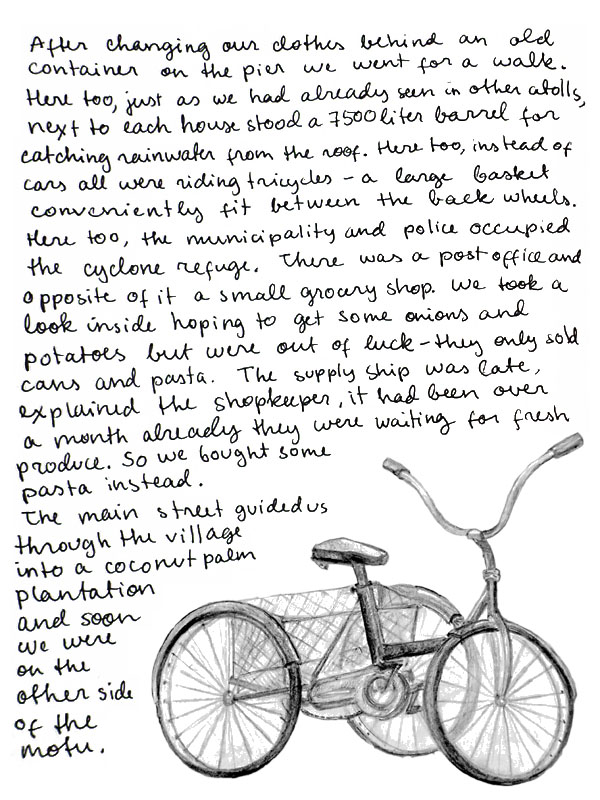 After changing our clothes behind an old
container on the pier we went for a walk.
Here too, just as we had already seen in other atolls,
next to each house stood a 7500 liter barrel for
catching rainwater from the roof. Here too, instead of
cars all were riding tricycles – a large basket
conveniently fit between the back wheels.
Here too, the municipality and police occupied
the cyclone refuge. There was a post office and
opposite of it a small grocery shop. We took a
look inside hoping to get some onions and
potatoes but were out of luck – they only sold
cans and pasta. The supply ship was late,
explained the shopkeeper, it had been over
a month already they were waiting for fresh
produce. So we bought some
pasta instead.
The main street guided us
through the village
into a coconut palm
plantation
and soon
we were
on the
other side
of the
motu.